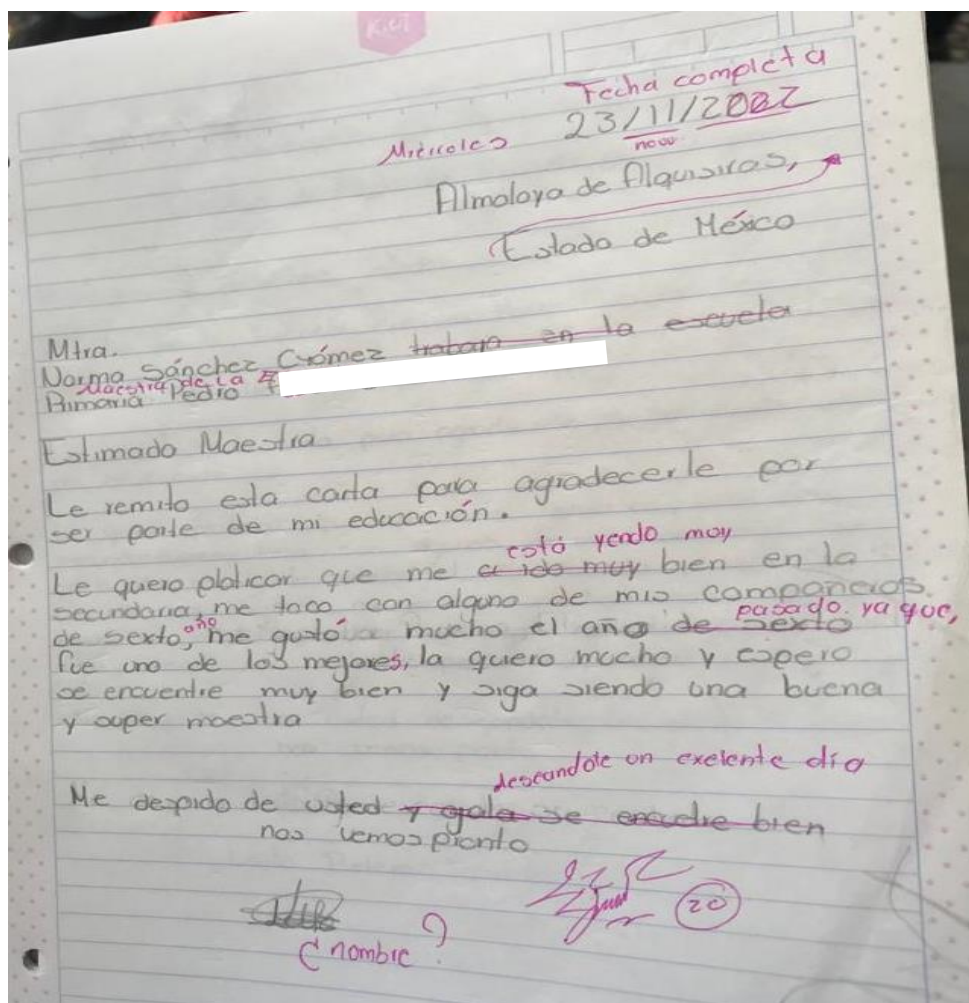 Kiut
Fecha completa
Miércoles 23/11/2022
nov.
Almoloya de Alquisiras,
Estado de México
Mtra.
Norma Sánchez Gómez trabaja en la escuela
Maestra de la
Primaria Pedro
Estimado Maestra
Le remito esta carta para agradecerle por
ser parte de mi educación.
está yendo muy
Le quero platicar que me a ido muy bien en la
secundaria, me toco con alguno de mis compañeros
de sexto, año me gustó mucho el año de sexto pasado ya que,
fue uno de los mejores, la quiero mucho y espero
se encuentre muy bien y siga siendo una buena
y super maestra
deseandole un exelente día
Me despido de usted y se bien
nos vemos pronto
20
¿nombre?